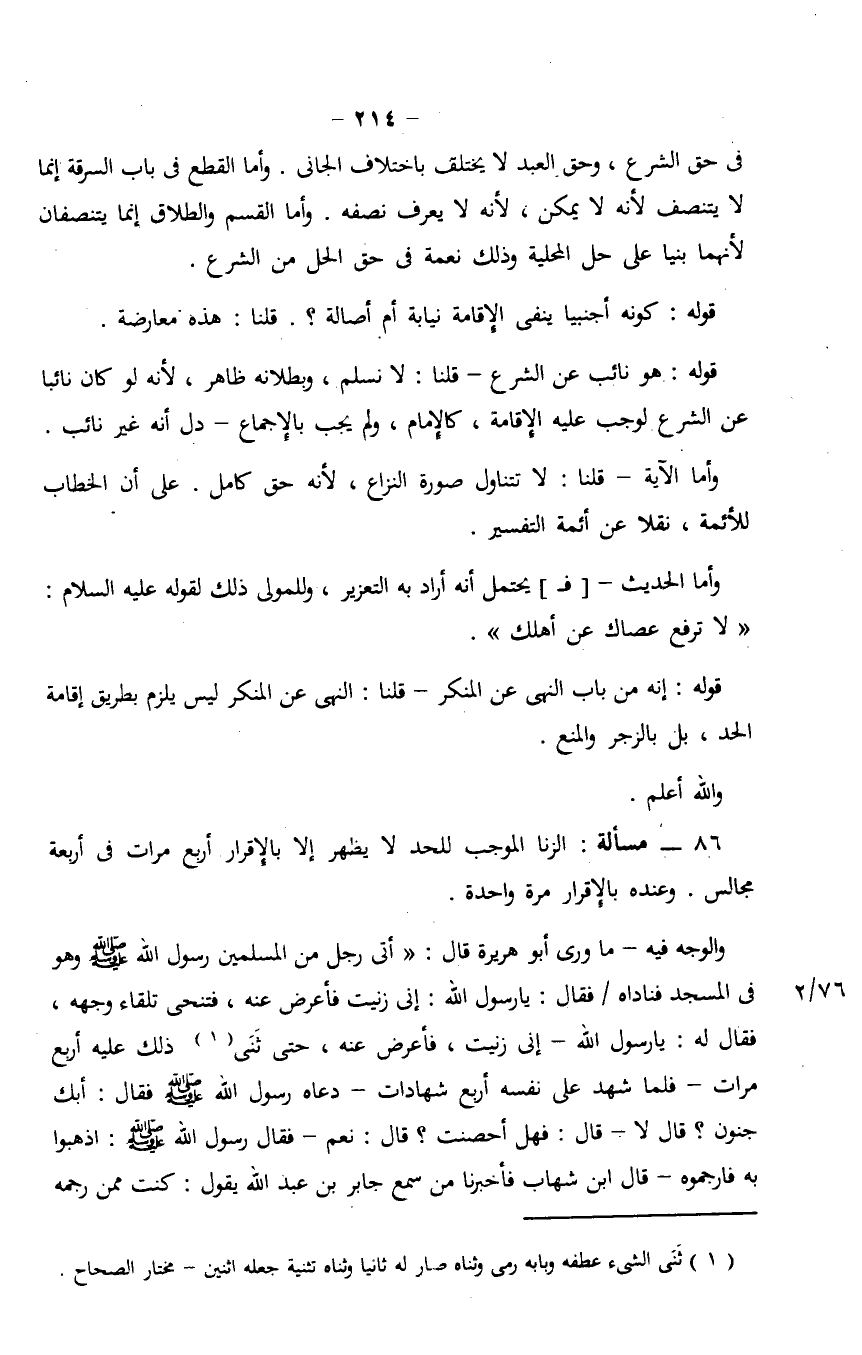 – ٢١٤ –
فى حق الشرع ، وحق العبد لا يختلف باختلاف الجانى . وأما القطع فى باب السرقة إنما
لا يتنصف لأنه لا يمكن ، لأنه لا يعرف نصفه . وأما القسم والطلاق إنما يتنصفان
لأنهما بنيا على حل المحلية وذلك نعمة فى حق الحل من الشرع .
قوله : كونه أجنبيا ينفى الإقامة نيابة أم أصالة ؟ . قلنا : هذه معارضة .
قوله : هو نائب عن الشرع – قلنا : لا نسلم ، وبطلانه ظاهر ، لأنه لو كان نائبا
عن الشرع لوجب عليه الإقامة ، كالإمام ، ولم يجب بالإجماع – دل أنه غير نائب .
وأما الآية – قلنا : لا تتناول صورة النزاع ، لأنه حق كامل . على أن الخطاب
للأئمة ، نقلا عن أئمة التفسير .
وأما الحديث – [ فـ ] يحتمل أنه أراد به التعزير ، وللمولى ذلك لقوله عليه السلام :
« لا ترفع عصاك عن أهلك » .
قوله : إنه من باب النهى عن المنكر – قلنا : النهى عن المنكر ليس يلزم بطريق إقامة
الحد ، بل بالزجر والمنع .
والله أعلم .
٨٦ – مسألة : الزنا الموجب للحد لا يظهر إلا بالإقرار أربع مرات فى أربعة
مجالس . وعنده بالإقرار مرة واحدة .
والوجه فيه – ما ورى أبو هريرة قال : « أتى رجل من المسلمين رسول الله ﷺ وهو
فى المسجد فناداه / فقال : يارسول الله : إنى زنيت فأعرض عنه ، فتنحى تلقاء وجهه ، ٢/٧٦
فقال له : يارسول الله – إنى زنيت ، فأعرض عنه ، حتى ثَنَى(١) ذلك عليه أربع
مرات – فلما شهد على نفسه أربع شهادات – دعاه رسول الله ﷺ فقال : أبك
جنون ؟ قال لا – قال : فهل أحصنت ؟ قال : نعم – فقال رسول الله ﷺ : اذهبوا
به فارجموه – قال ابن شهاب فأخبرنا من سمع جابر بن عبد الله يقول : كنت ممن رجمه
( ١ ) ثَنَى الشىء عطفه وبابه رمى وثناه صار له ثانيا وثناه تثنية جعله اثنين – مختار الصحاح .